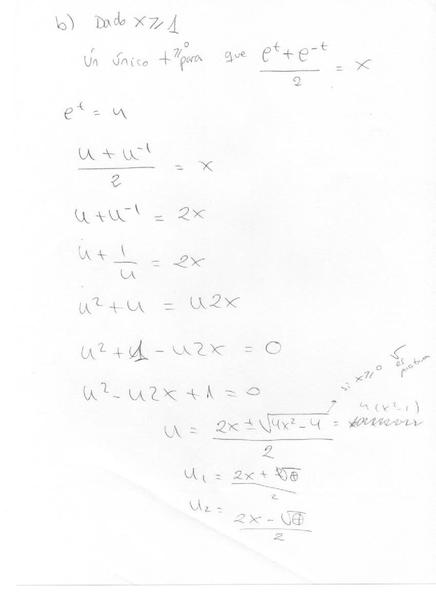 b) Dado x ≥ 1
Un único t ≥ 0 para que (e^t + e^-t)/2 = x
e^t = u
(u + u^-1)/2 = x
u + u^-1 = 2x
u + 1/u = 2x
u² + u = u2x
u² + 1 - u2x = 0
u² - u2x + 1 = 0
u = (2x ± √(4x² - 4))/2 = 4(x² - 1)
si x ≥ 0 √ es
u₁ = (2x + √⊕)/2
u₂ = (2x - √⊕)/2